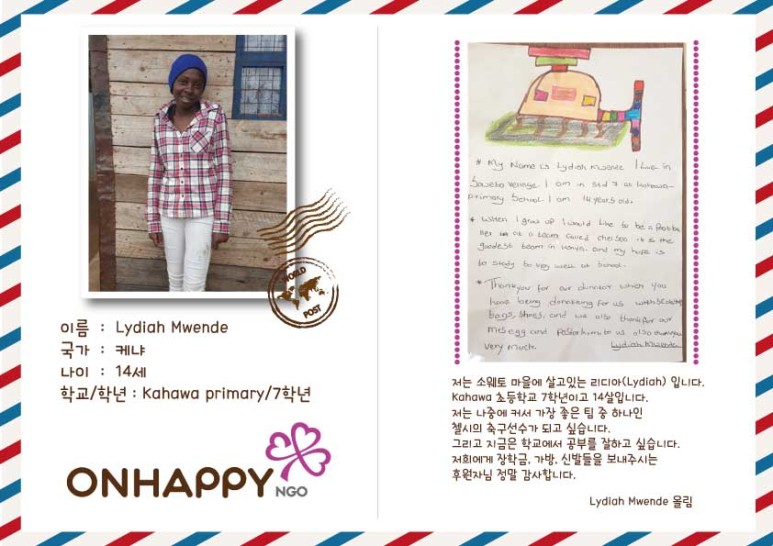 이름 : Lydiah Mwende
국가 : 케냐
나이 : 14세
학교/학년 : Kahawa primary/7학년
WORLD
POST
ONHAPPY
NGO
* My Name is Lydiah Mwende I Live in
Soweto Village. I am in Std 7 at Kahawa
primary School. I am 14 years old.
* When I grow up I would like to be a
at a team called chelsea it is the
team in and my hope is
to study to very well in School.
* Thankyou for our donator which you
have being donating for us with
bags, shoes, and we also thank for our
and to us also
very much. Lydiah Mwende
저는 소웨토 마을에 살고있는 리디아(Lydiah) 입니다.
Kahawa 초등학교 7학년이고 14살입니다.
저는 나중에 커서 가장 좋은 팀 중 하나인
첼시의 축구선수가 되고 싶습니다.
그리고 지금은 학교에서 공부를 잘하고 싶습니다.
저희에게 장학금, 가방, 신발들을 보내주시는
후원자님 정말 감사합니다.
Lydiah Mwende 올림